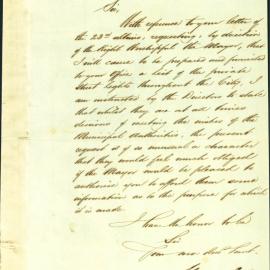 Sir,
With reference to your letter of
the 23rd ultimo, requesting, by direction
of the Right Worshipful the Mayor, that
I will cause to be prepared and furnished
to your Office a list of the private
Street Lights throughout the City, I
am instructed by the Directors to state
that whilst they are at all times
desirous of meeting the wishes of the
Municipal Authorities, the present
request is of so unusual a character
that they would feel much obliged
if the Mayor would be pleased to
authorize you to afford them some
information as to the purpose for which
it is made
I have the honor to be
Sir
Your most obedt Servt